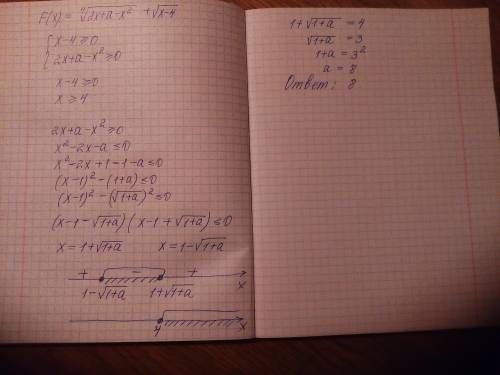 F(x) = ⁴√(2x+a-x²) + √(x-4)
{ x-4 ≥ 0
{ 2x+a-x² ≥ 0
x-4 ≥ 0
x ≥ 4
2x+a-x² ≥ 0
x²-2x-a ≤ 0
x²-2x+1-1-a ≤ 0
(x-1)² - (1+a) ≤ 0
(x-1)² - (√(1+a))² ≤ 0
(x-1-√(1+a)) (x-1+√(1+a)) ≤ 0
x = 1+√(1+a) x = 1-√(1+a)
+ - +
1-√(1+a) 1+√(1+a) x
4 x
1+√(1+a) = 4
√(1+a) = 3
1+a = 3²
a = 8
Ответ: 8